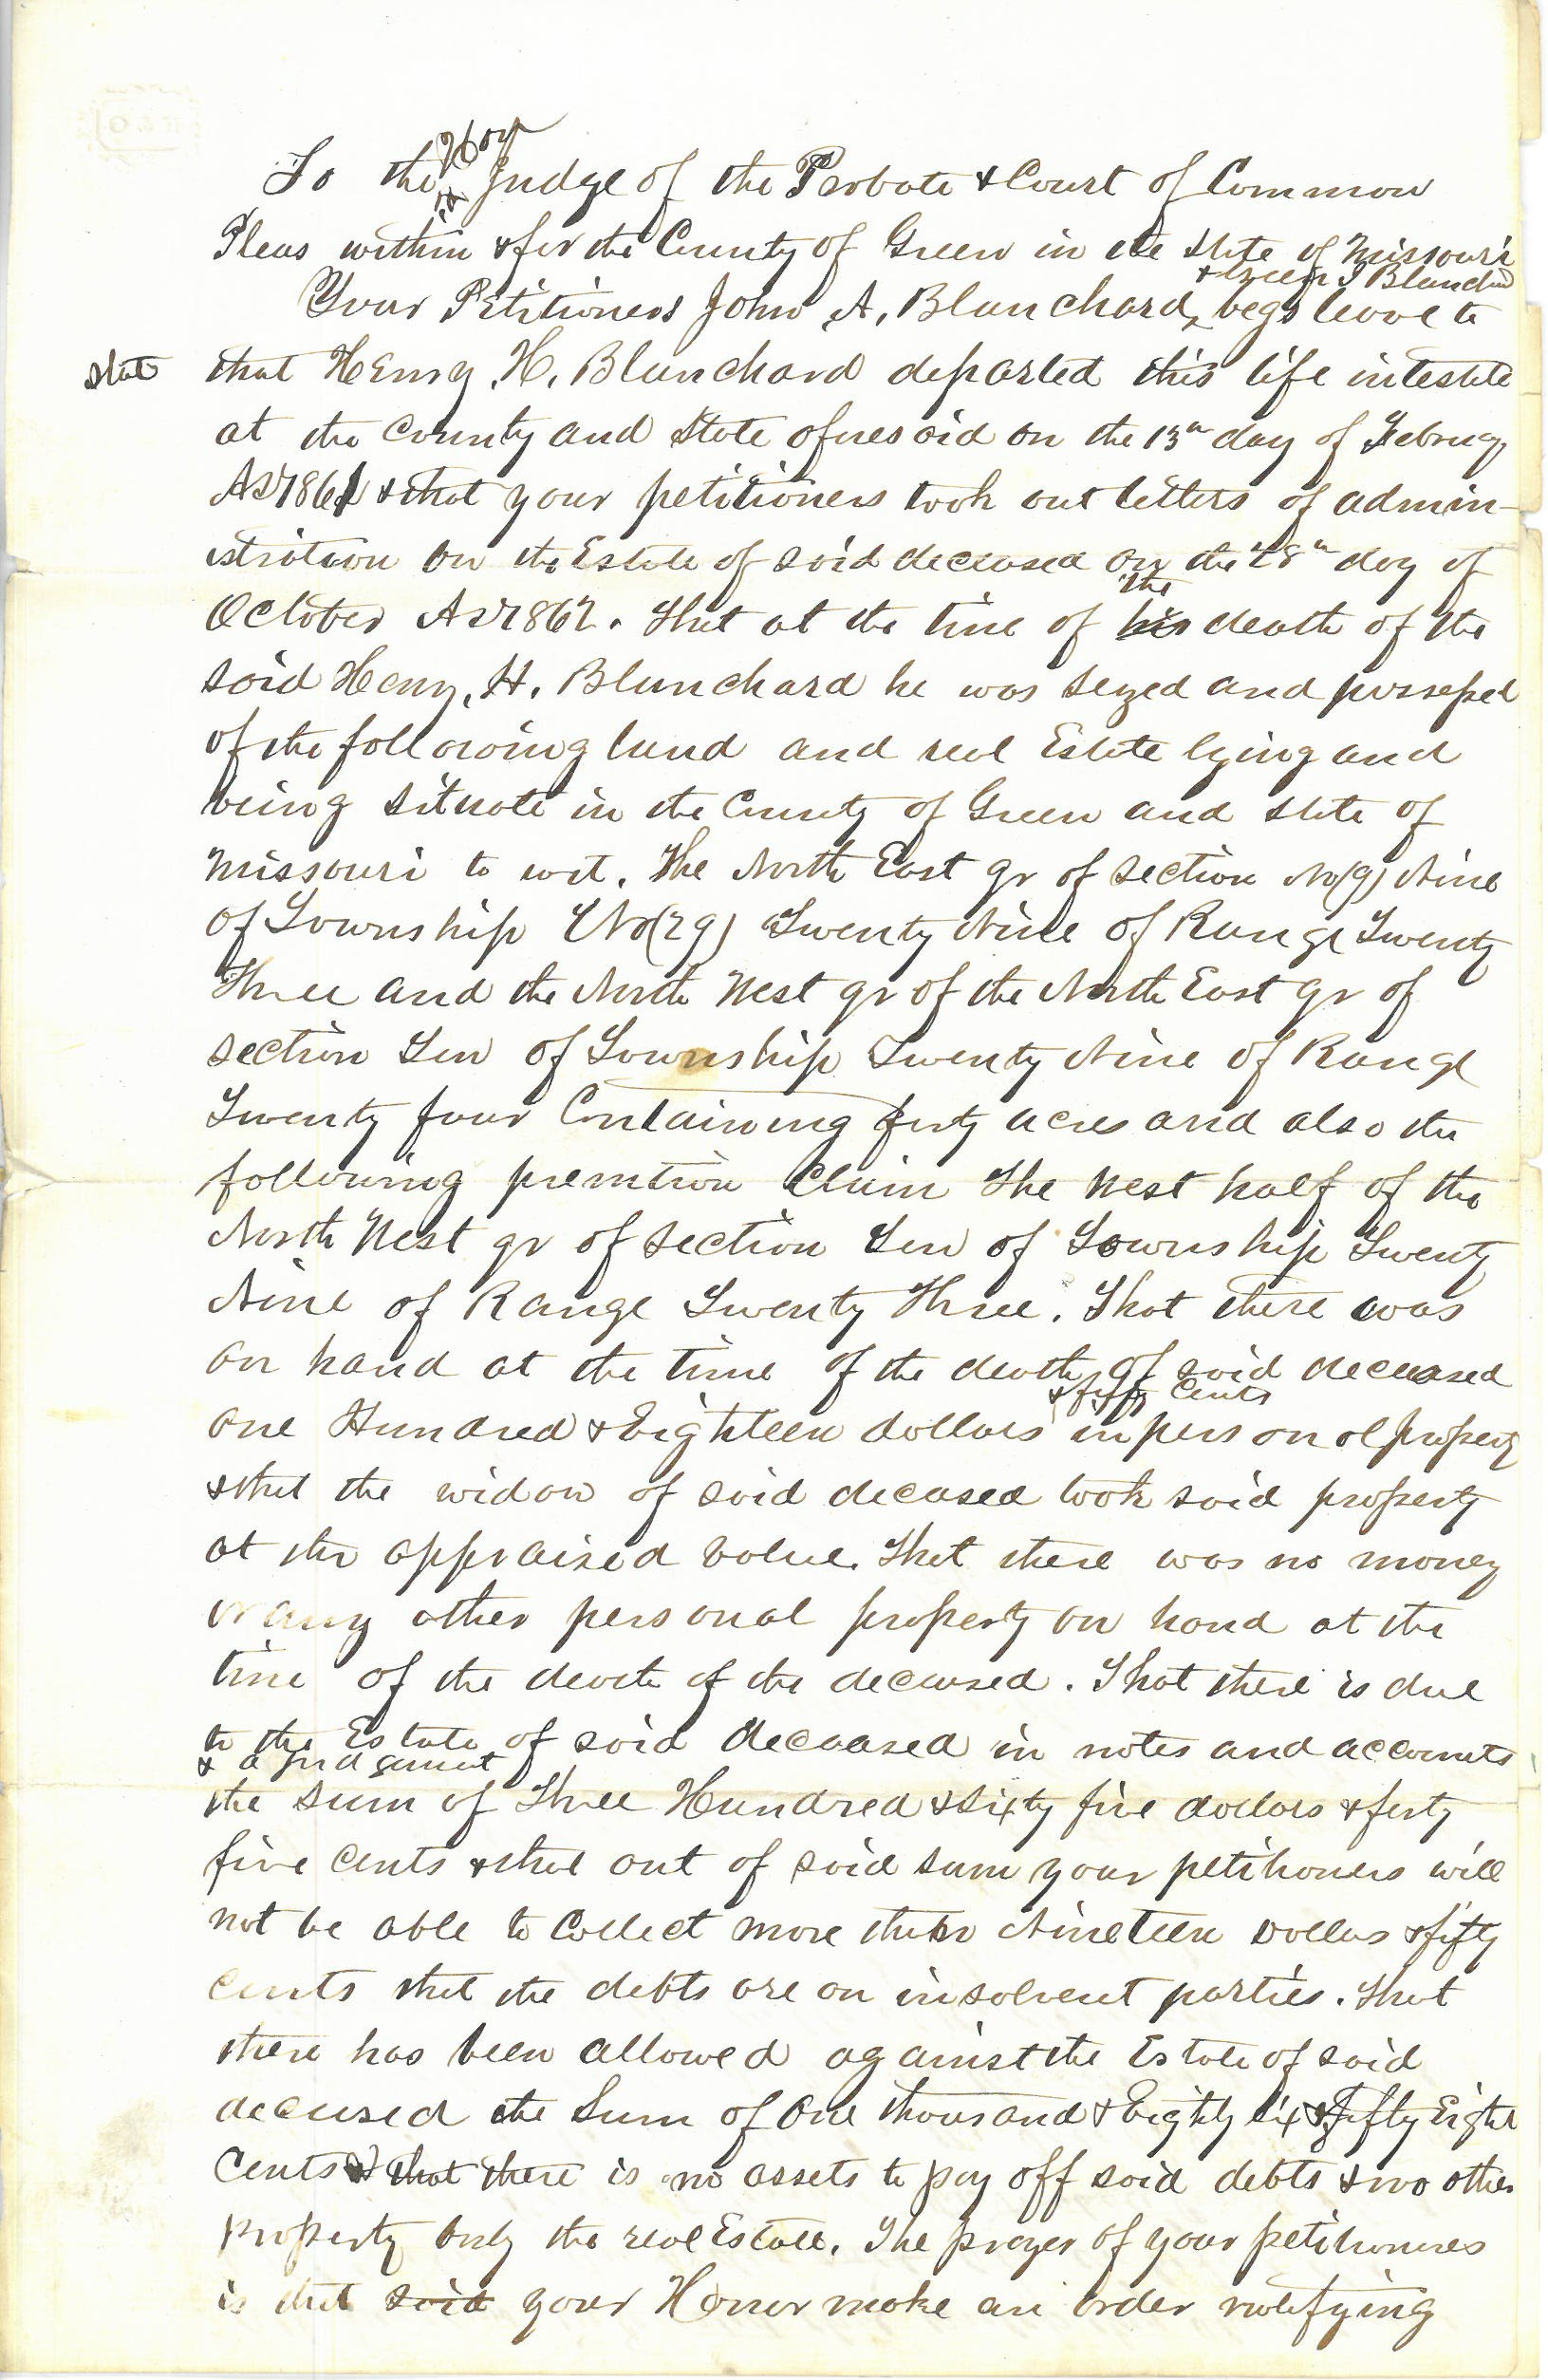 To the Hon Judge of the Probate & Court of Common
Pleas within & for the County of Green in the State of Missouri
& Green J Blanchard
Your Petitioners John A. Blanchard, begs leave to
state that Henry H. Blanchard departed this life intestate
at the County and State aforesaid on the 13th day of February
AD 1861 & that your petitioners took out letters of admin-
istration on the Estate of said deceased on the 28th day of
October AD 1862. That at the time of his the death of the
said Henry H. Blanchard he was seized and possessed
of the following land and real Estate lying and
being situate in the County of Green and State of
Missouri to wit. The North East qr of section No (9) Nine
of Township No (29) Twenty Nine of Range Twenty
Three and the North West qr of the North East qr of
section Ten of Township Twenty Nine of Range
Twenty four Containing forty acres and also the
following premtion Claim The West half of the
North West qr of section Ten of Township Twenty
Nine of Range Twenty Three. That there was
on hand at the time of the death of said deceased
one Hundred & Eighteen dollars & fifty cents in personal property
& that the widow of said deceased took said property
at the appraised value. That there was no money
or any other personal property on hand at the
time of the death of the deceased. That there is due
to the Estate of said deceased in notes and accounts
& a judgement
the sum of Three Hundred & Sixty five dollars & forty
five cents & that out of said sum your petitioners will
not be able to Collect more than Nineteen Dollars & fifty
cents that the debts are on insolvent parties. That
there has been allowed against the Estate of said
deceased the Sum of One thousand & Eighty six & Fifty Eight
Cents & that there is no assets to pay off said debts & no other
property only the real Estate. The prayer of your petitioners
is that said your Honor make an order notifying